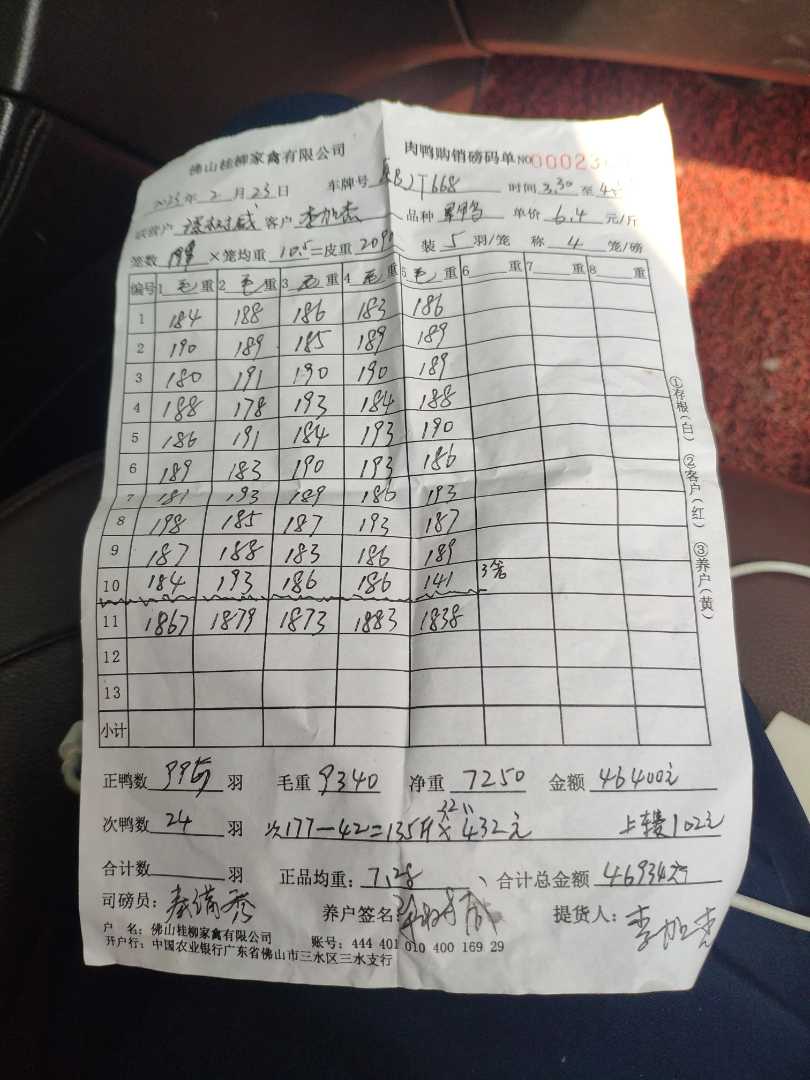 佛山桂柳家禽有限公司 肉鸭购销磅码单 NO 00023
2023年 2月 23日 车牌号 668 时间 3.30 至 4
客户 李旭杰 品种 单价 6.4 元/斤
笼数 ×笼均重 10.5 =皮重 2090 装 5 羽/笼 称 4 笼/磅
编号 1 毛 重 2 毛 重 3 毛 重 4 毛 重 5 毛 重 6 重 7 重 8 重
1 184 188 186 183 186
2 190 189 185 189 189
3 180 191 190 190 189
4 188 178 193 184 188
5 186 191 184 193 190
6 189 183 190 193 186
7 181 193 189 186 193
8 198 185 187 193 187
9 187 188 183 186 189
10 184 193 186 186 141 3笼
11 1867 1879 1873 1883 1838
12
13
小计
①存根(白) ②客户(红) ③养户(黄)
正鸭数 995 羽 毛重 9340 净重 7250 金额 46400元
次鸭数 24 羽 次177-42=135斤× 3.2 432元 上车费102元
合计数 羽 正品均重: 7.28 、合计总金额 46934元
司磅员: 秦满秀 养户签名: 提货人: 李旭杰
户 名: 佛山桂柳家禽有限公司 账号: 444 401 010 400 169 29
开户行: 中国农业银行广东省佛山市三水区三水支行